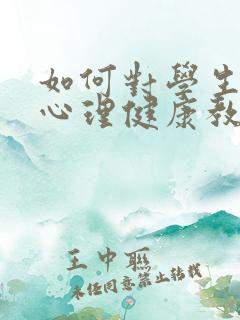 如何對學生
心理健康教
王中聯
未經同意禁止轉載